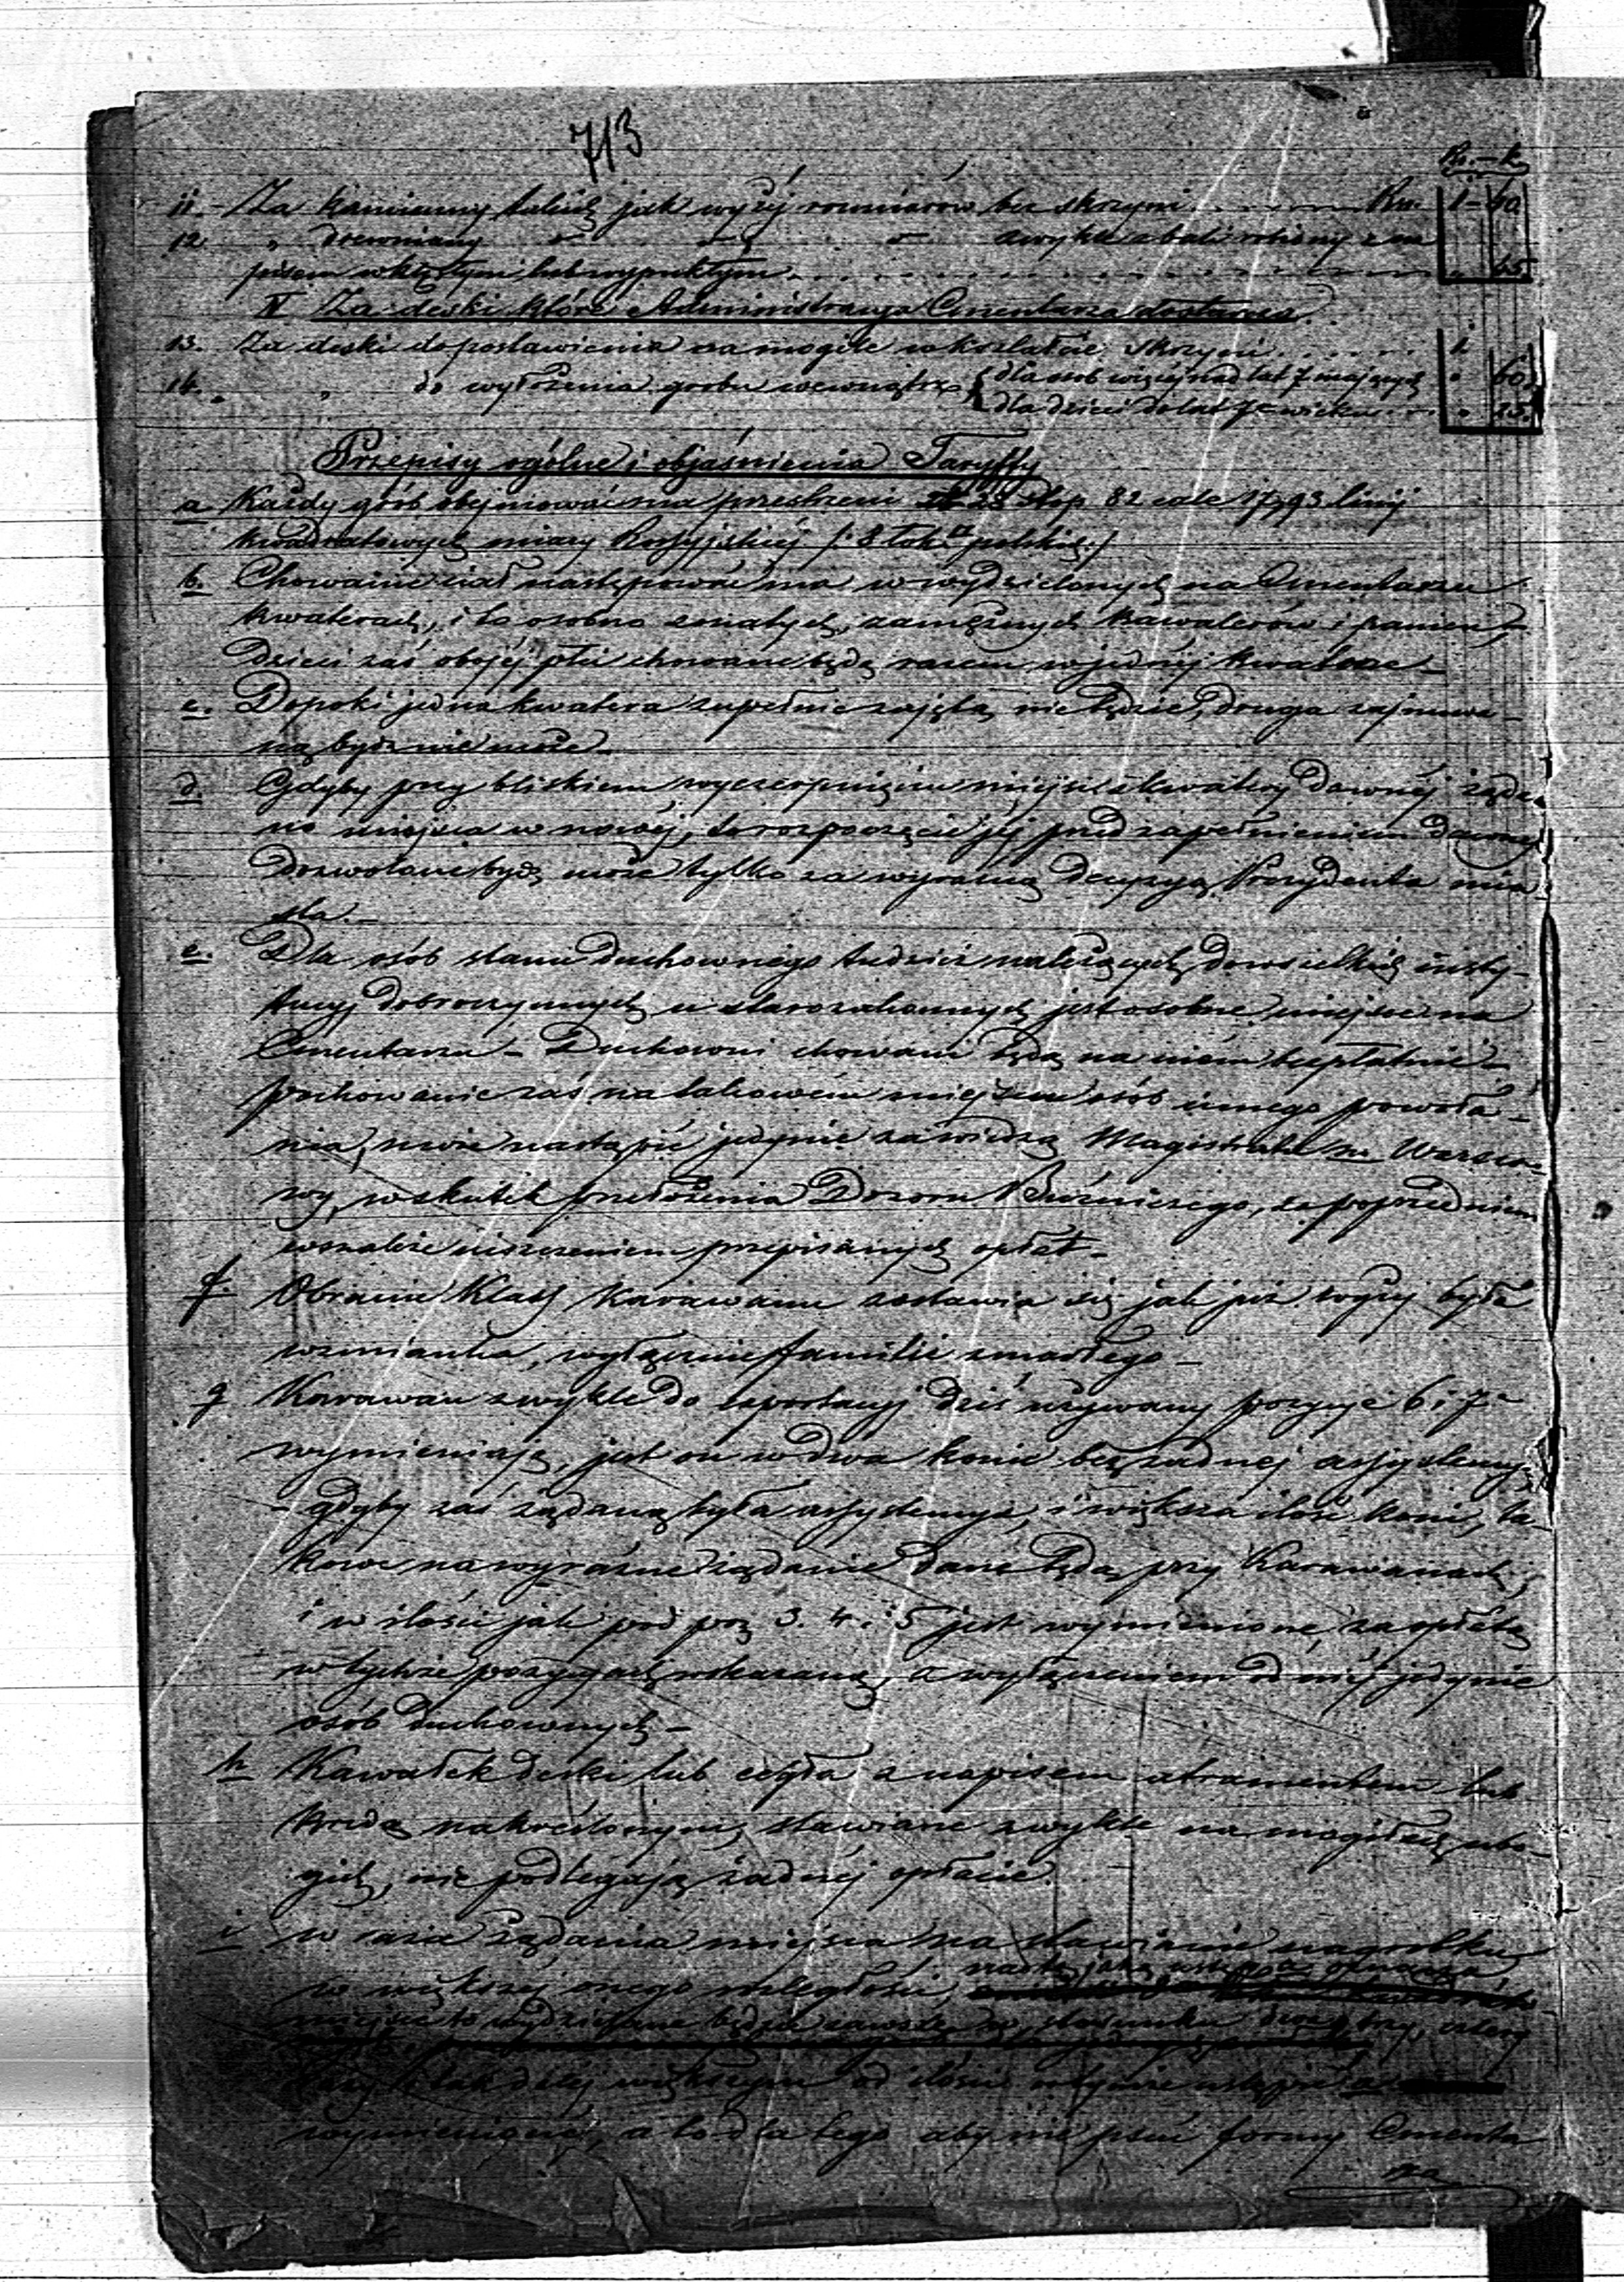 713
Rs. – k.
11. – Za kamienny takich jak wyżej rozmiarów bez skrzyni . . . . . . Rs. 1 – 40
12 „ drewniany d° d° d° zwykle z bali robiony z na
pisem wklęsłym lub wypukłym . . . . . . „ 45
V Za deski które Administracya Cmentarza dostarcza.
13. Za deski do postawienia na mogile w kształcie skrzyni . . . . . 1
14. „ „ do wyłożenia grobu wewnątrz { dla osób więcej nad lat 7 mających „ 60
dla dzieci do lat 7 wieku . . . „ 25
Przepisy ogólne i objaśnienia Taryffy
a Każdy grób obejmować ma przestrzeni 28 stop 82 cale 17,93 linij
kwadratowych miary Rossyjskiéj /: 8 łok. □ polskich :/
b. Chowanie ciał następować ma w wydzielonych na Cmentarzu
kwaterach, i to osobno żonatych, zamężnych kawalerów i panien,
Dzieci zaś obojéj płci chowane będą razem w jednéj kwaterze –
c. Dopoki jedna kwatera zupełnie zajętą nie będzie, druga zajmowa-
ną bydź nie może –
d. Gdyby przy bliskiem wyczerpnięciu miejsc z kwatery dawnéj żąda-
no miejsca w nowéj, to rozpoczęcie jéj przed zapełnieniem dawnej
dozwolone bydź może tylko za wyraźną decyzyą Prezydenta mia
sta. –
e. Dla osób stanu Duchownego tudzież należących do wszelkich insty-
tucyj dobroczynnych u starozakonnych jest osobne miejsce na
Cmentarzu – Duchowni chowani będą na niém bezpłatnie –
pochowanie zaś na takowém miejscu osób innego powoła-
nia, może nastąpić jedynie za wiedzą Magistratu m. Warsza-
wy, wskutek przełożenia Dozoru Bóżniczego, za poprzedniem
wszakże uiszczeniem przepisanych opłat –
f. Obranie Klass Karawanu zostawia się jak już wyżej była
wzmianka, wyłącznie familii zmarłego –
g Karawan zwykle do exportacyj dziś używany pozycje 6 i 7
wymieniają, jest on w dwa konie bez żadnej assystencyi,
gdyby zaś żądaną była assystencya, i większa ilość koni, ta-
kowe na wyraźne żądanie dane będą przy Karawanach,
i w ilości jak pod poz 3. 4. i 5 jest wymienione, za opłatą
w tychże pozycyach wskazaną, z wyłączeniem od niéj jedynie
osób duchownych –
h Kawałek deski lub cegła z napisem atramentem lub
kredą nakreślonym, stawiane zwykle na mogiłach ubo-
gich, nie podlegają żadnéj opłacie.
i w razie żądania miejsca na stawianie nagrobku
w większéj onego rozległości,
miejsce to wydzielane będzie zawsze w stosunku dwa, trzy, cztery
razy i tak daléj większym od ilości
wymienione, a to dla tego aby nie psuć formy Cmenta
rza